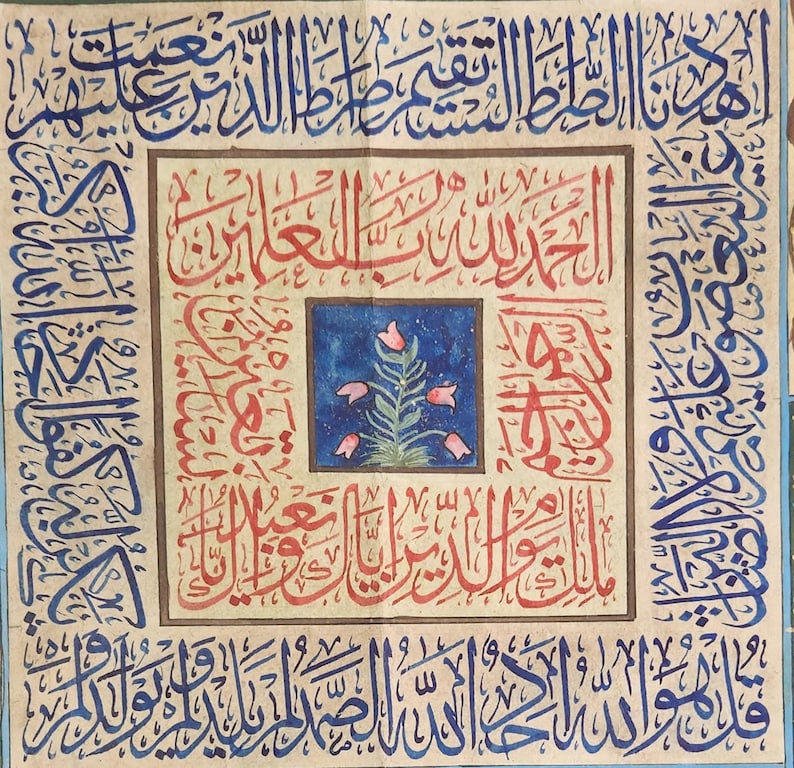 الحمد لله رب العلمين
الرحمن الرحيم
ملك يوم الدين اياك نعبد و اياك
نستعين
اهدنا الصرط المستقيم صرط الذين انعمت عليهم
غير المغضوب عليهم ولا الضالين
قل هو الله احد الله الصمد لم يلد ولم يولد ولم
يكن له كفوا احد